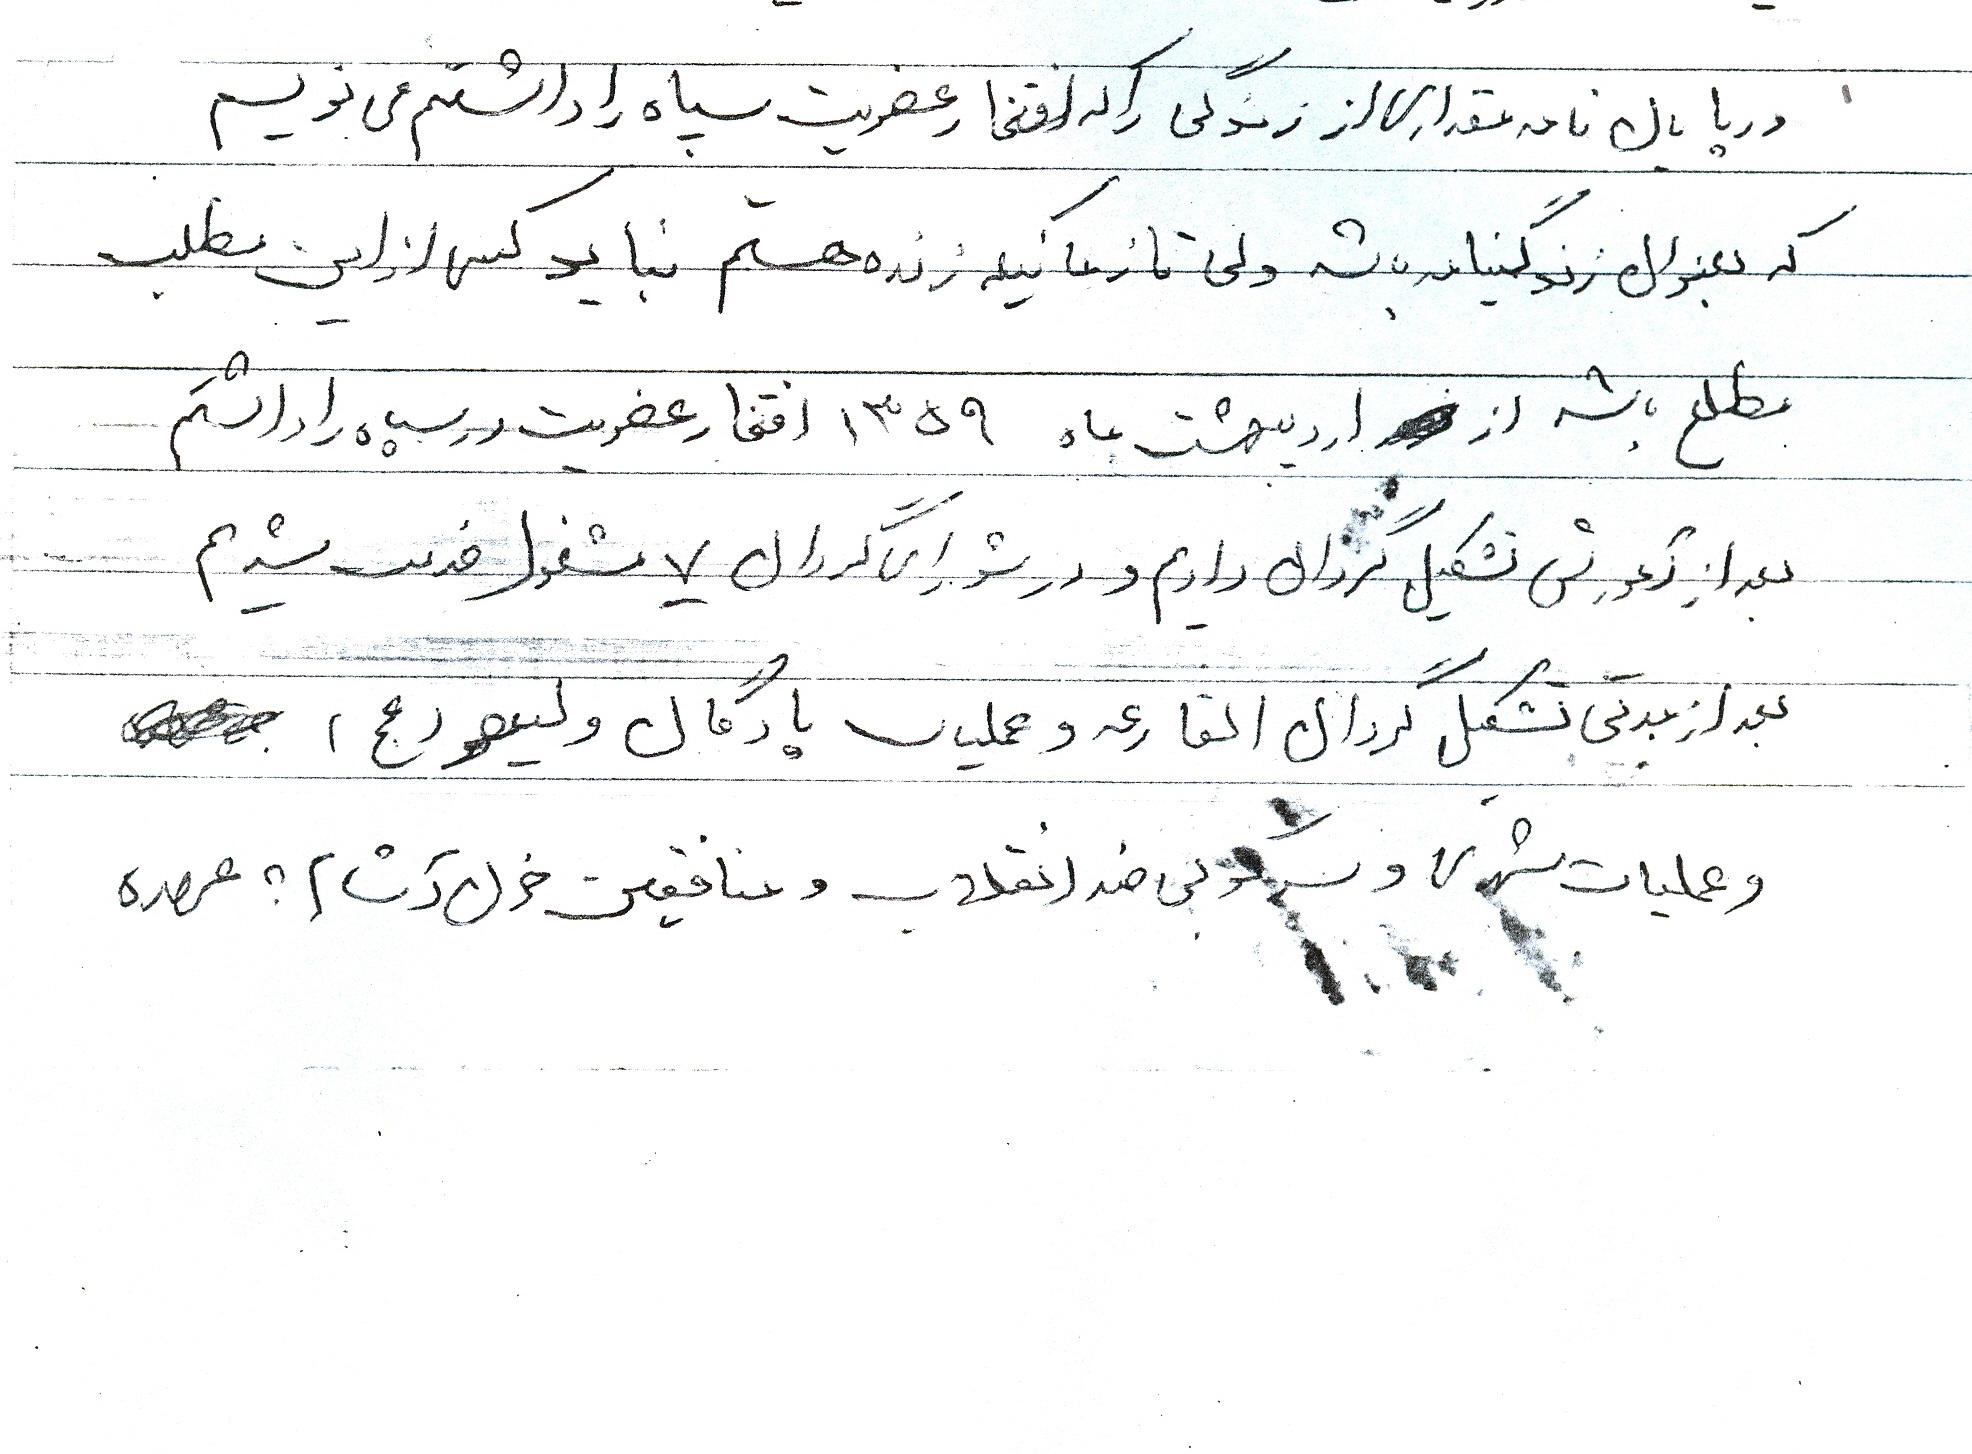 در پایان نامه مقداری از زندگی را که افتخار عضویت سپاه را داشتم می نویسم
که بعنوان زندگینامه باشد ولی تا زمانیکه زنده هستم نباید کسی از این مطلب
مطلع باشد از اردیبهشت ماه ۱۳۵۹ افتخار عضویت در سپاه را داشتم
بعد از آموزش تشکیل گردان دادیم و در شورای گردان ۷ مشغول خدمت شدیم
بعد از مدتی تشکیل گردان القارعه و عملیات پادگان ولیعصر (عج)
و عملیات شهری و سرکوبی ضد انقلاب و منافقین خون آشام